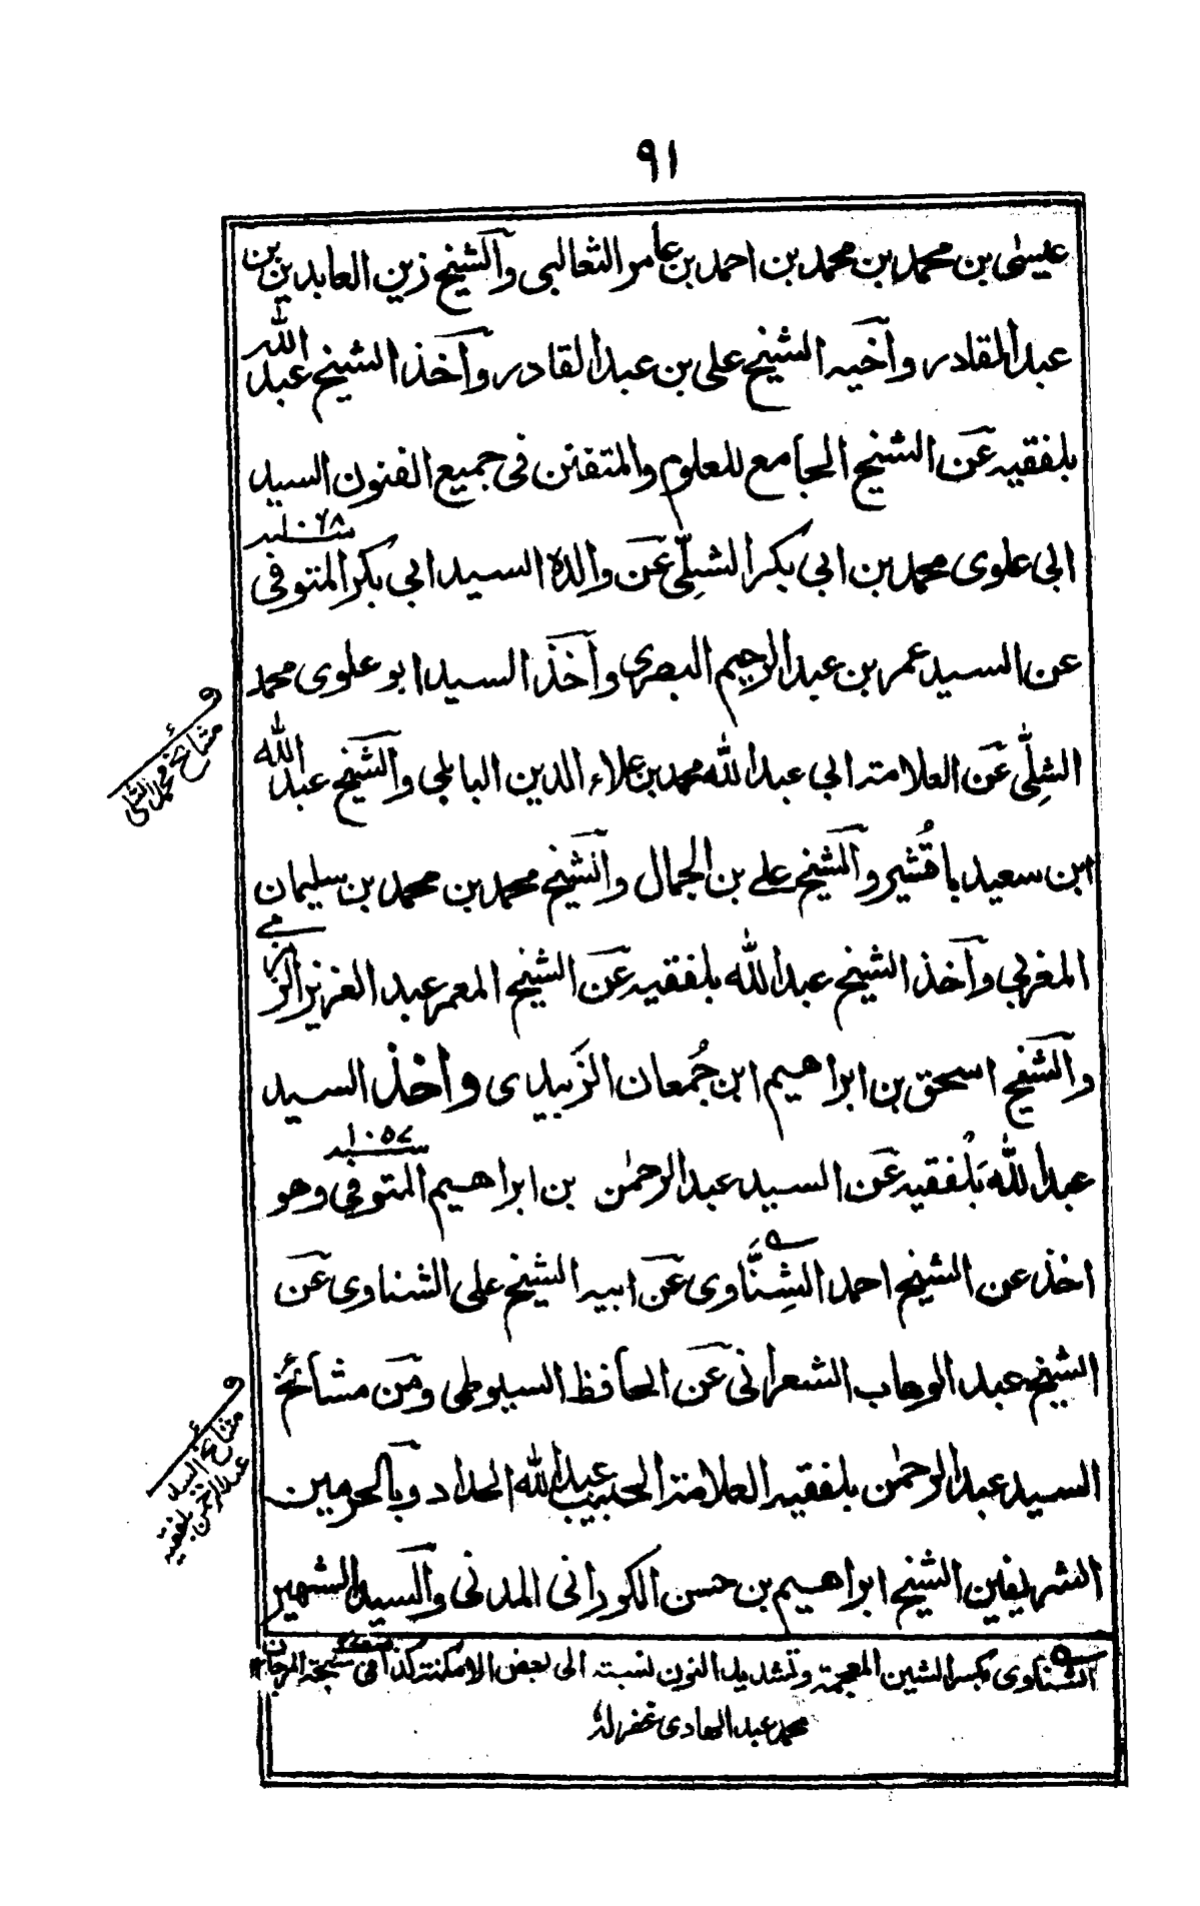 ٩١
عيسٰى بن محمد بن محمد بن احمد بن عامر الثعالبى والشيخ زين العابدين بن
عبد القادر وأخيه الشيخ على بن عبد القادر وأخذ الشيخ عبد الله
بلفقيه عن الشيخ الجامع للعلوم والمتفنن فى جميع الفنون السيد
ابى علوى محمد بن ابى بكر الشلّى عن والده السيد ابى بكر المتوفى
عن السيد عمر بن عبد الرحيم البصرى وأخذ السيد ابو علوى محمد
الشِلّى عن العلامة ابى عبد الله محمد بن علاء الدين البابلى والشيخ عبد الله
ابن سعيد باقُشير والشيخ على بن الجمال والشيخ محمد بن محمد بن سليمان
المغربى وأخذ الشيخ عبد الله بلفقيه عن الشيخ المعمر عبد العزيز الزمزمى
والشيخ اسحق بن ابراهيم ابن جُمعان الزَبيدى وأخذ السيد
عبد الله بَلْفقيه عن السيد عبد الرحمٰن بن ابراهيم المتوفى وهو
اخذ عن الشيخ احمد الشِنَّاوى عن ابيه الشيخ على الشناوى عن
الشيخ عبد الوهاب الشعرانى عن الحافظ السيوطى ومن مشائخ
السيد عبد الرحمٰن بلفقيه العلامة الحبيب عبد الله الحداد وبالحرمين
الشريفين الشيخ ابراهيم بن حسن الكورانى المدنى والسيد الشهير
الشناوى بكسر الشين المعجمة وتشديد النون نسبة الى بعض الامكنة كذا فى سبحة المرجان
محمد عبد الهادى غفر له
مشائخ محمد الشلى
مشائخ السيد
عبد الرحمن بلفقيه